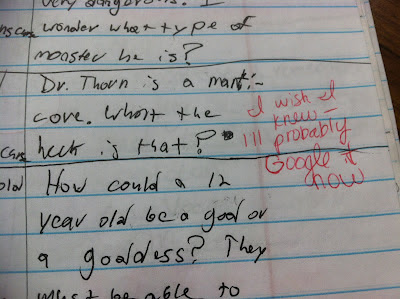 very dangerous. I
wonder what type of
monster he is?
Dr. Thorn is a manti-
core. What the
heck is that?
I wish I
knew -
I'll probably
Google it
now
old
How could a 12
year old be a god or
a goddess? They
must be able to